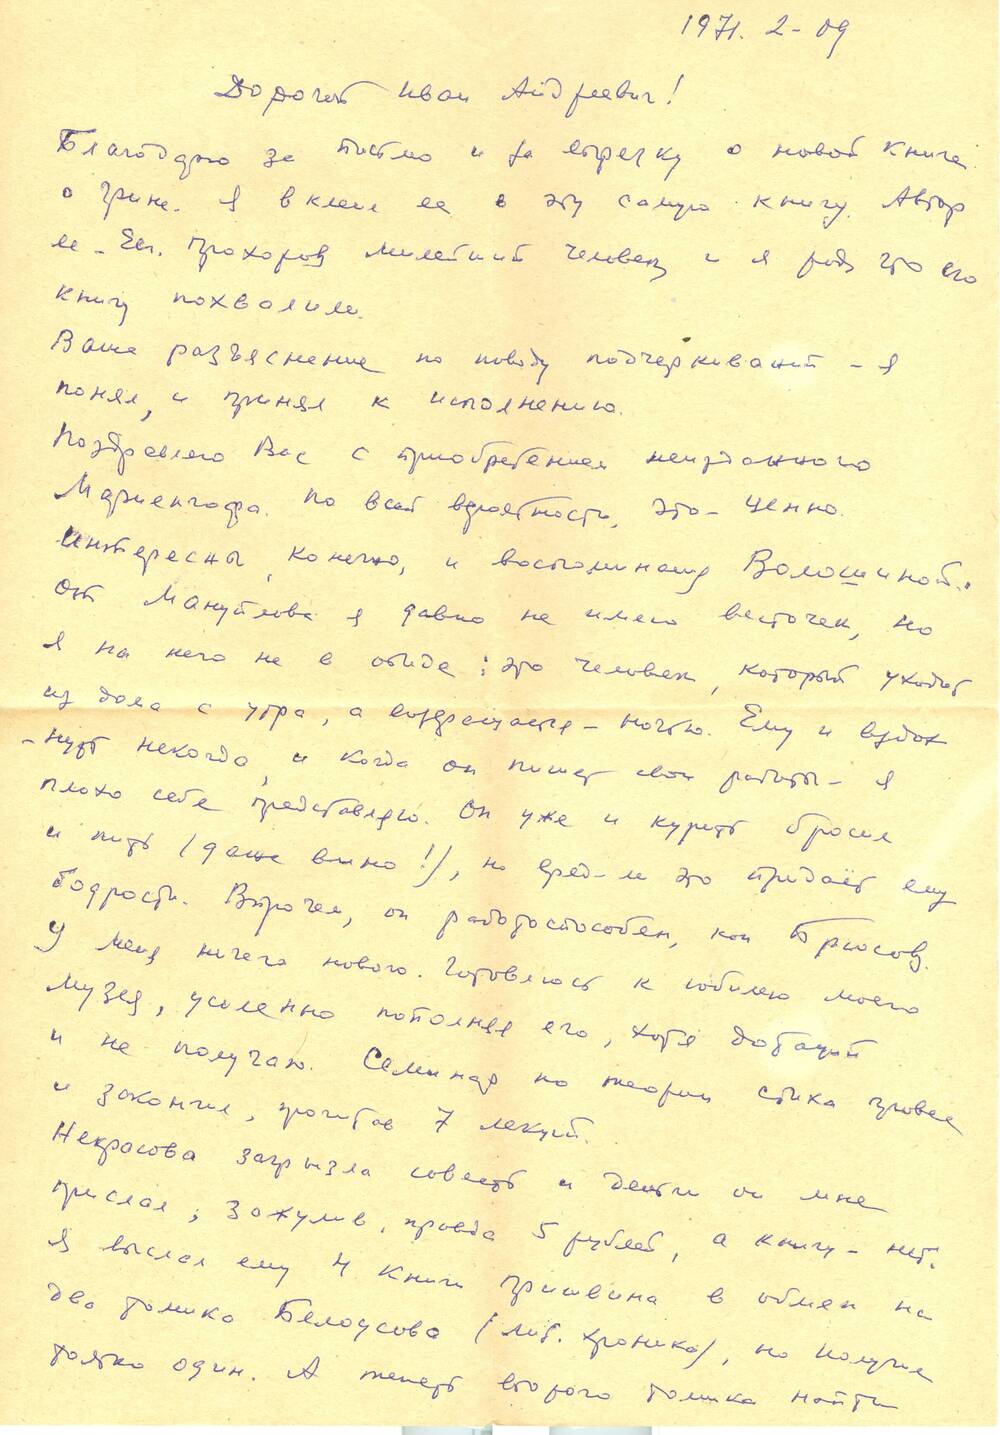 1971. 2-09
Дорогой Иван Андреевич!
Благодарю за письмо и за вырезку о новой книге
о Грине. Я вклеил ее в эту самую книгу. Автор
ее - Евг. Прохоров милейший человек и я рад что его
книгу похвалили.
Ваше разъяснение по поводу подчеркиваний - я
понял, и принял к исполнению.
Поздравляю Вас с приобретением неизданного
Мариенгофа. По всей вероятности, это - ценно.
Интересны, конечно, и воспоминания Волошиной.
От Мануйлова я давно не имею весточек, но
я на него не в обиде: это человек, который уходит
из дома с утра, а возвращается - ночью. Ему и вздох
-нуть некогда, и когда он пишет свои работы - я
плохо себе представляю. Он уже и курить бросил
и пить (даже вино!), но вряд-ли это придаёт ему
бодрости. Впрочем, он работоспособен, как Брюсов.
У меня ничего нового. Готовлюсь к юбилею моего
музея, усиленно пополняя его, хотя дотаций
и не получаю. Семинар по теории стиха провел
и закончил, прочитав 7 лекций.
Некрасова загрызла совесть и деньги он мне
прислал, зажулив, правда 5 рублей, а книгу - нет.
Я выслал ему 4 книги Пришвина в обмен на
два томика Белоусова (лит. хроника), но получил
только один. А теперь второго томика найти